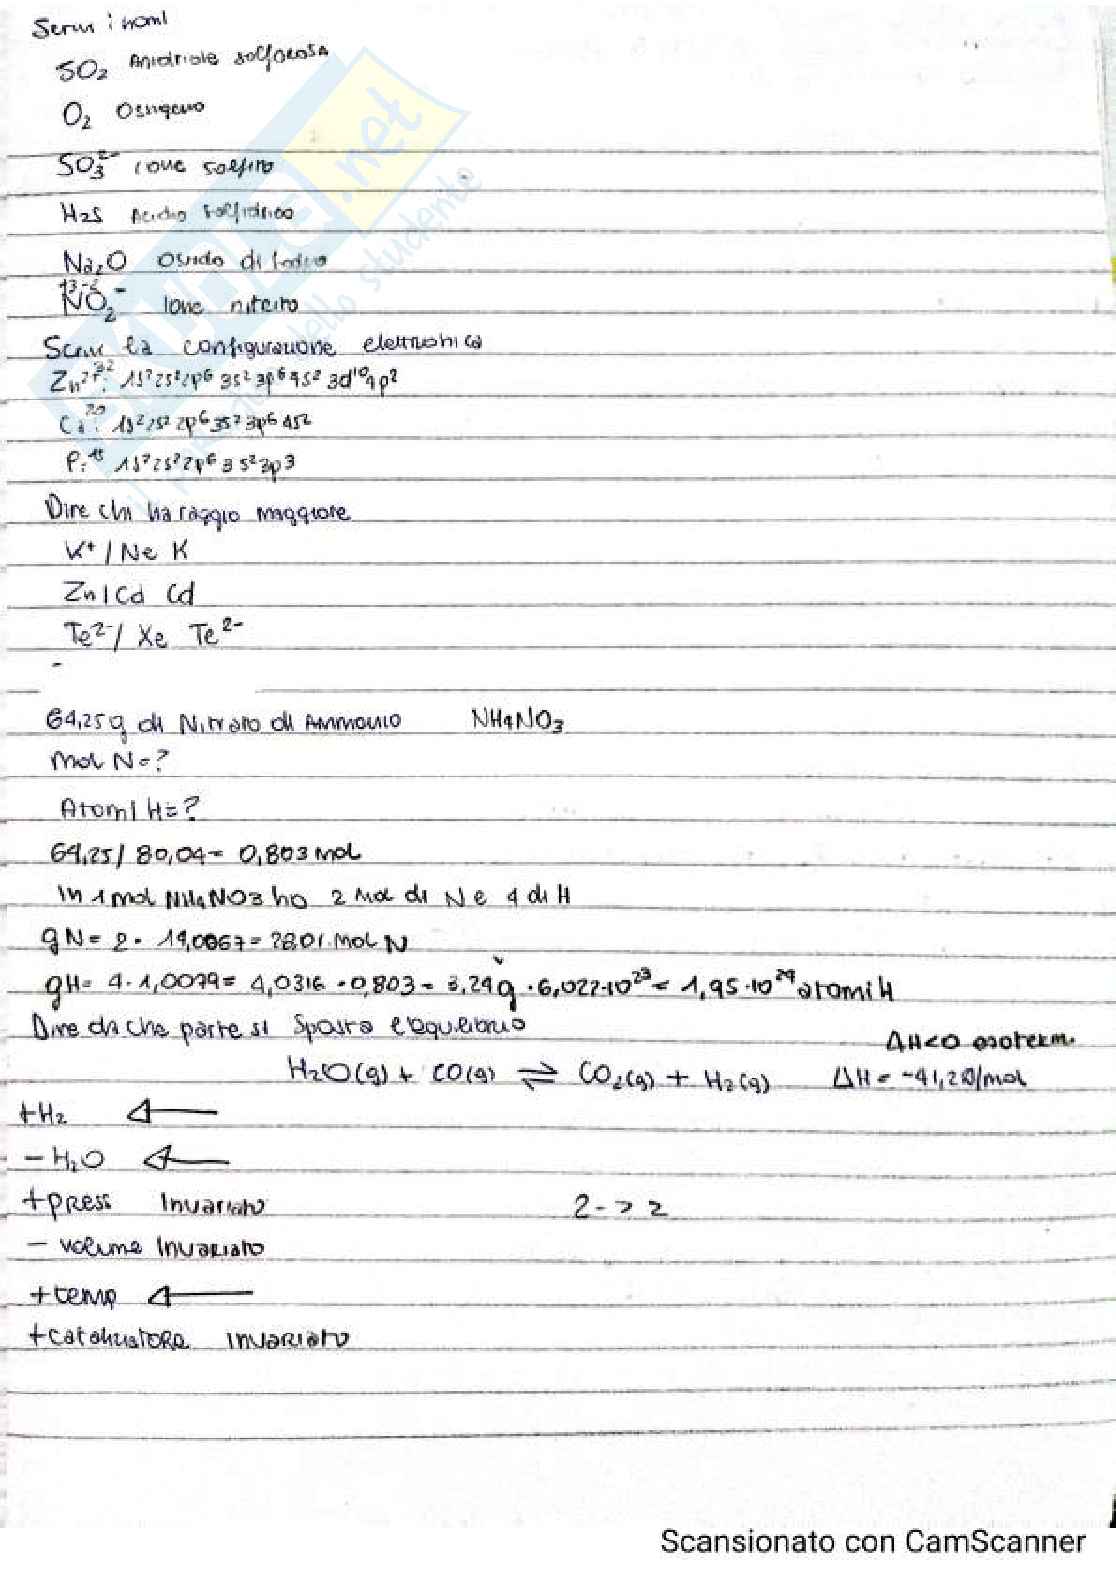 Scrivi i nomi
SO2 Anidride solforosa
O2 Ossigeno
SO3^2- ione solfito
H2S Acido solfidrico
Na2O Ossido di sodio
+3 -2
NO2^- Ione nitrito
Scrivi la configurazione elettronica
Zn^2+: 32 1s2 2s2 2p6 3s2 3p6 4s2 3d10 4p2
Ca: 20 1s2 2s2 2p6 3s2 3p6 4s2
P: 15 1s2 2s2 2p6 3s2 3p3
Dire chi ha raggio maggiore
K+ / Ne K
Zn / Cd Cd
Te^2- / Xe Te^2-
64,25 g di Nitrato di Ammonio NH4NO3
Mol N=?
Atomi H=?
64,25 / 80,04= 0,803 mol
In 1 mol NH4NO3 ho 2 mol di N e 4 di H
gN= 2 · 14,0067= 2801 mol N
gH= 4 · 1,0079= 4,0316 · 0,803 = 3,24g · 6,022·10^23= 1,95·10^24 atomi H
Dire da che parte si sposta l'equilibrio
ΔH<0 esoterm.
H2O(g) + CO(g) ⇌ CO2(g) + H2(g) ΔH = -41,2 /mol
+H2 ←
- H2O ←
+ press Invariato 2 -> 2
- volume Invariato
+ temp ←
+ catalizzatore invariato
Scansionato con CamScanner